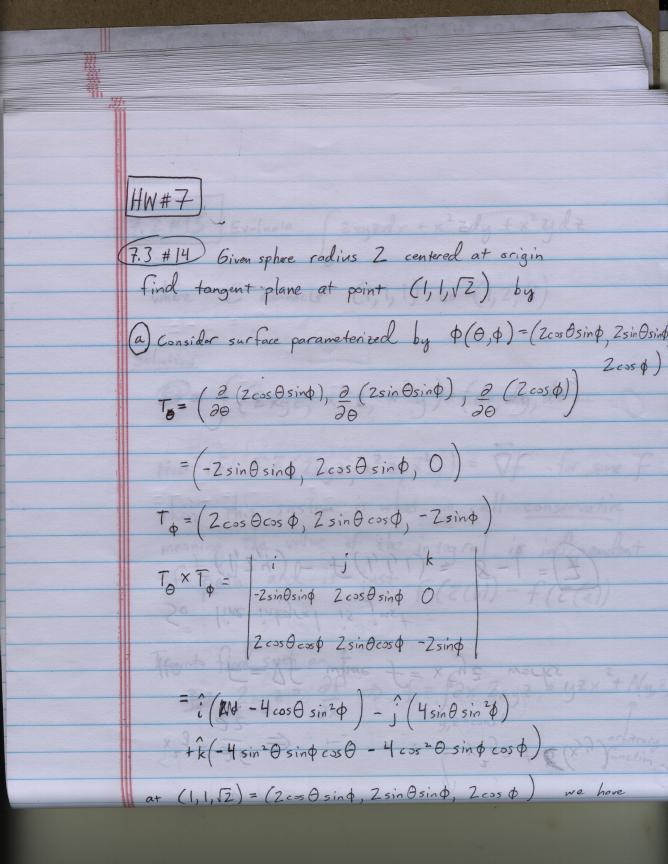 HW#7
7.3 #14 Given sphere radius 2 centered at origin
find tangent plane at point (1,1,√2) by
(a) Consider surface parameterized by Φ(θ,φ)=(2cosθsinφ, 2sinθsinφ
2cosφ)
T_θ = (∂/∂θ (2cosθsinφ), ∂/∂θ (2sinθsinφ), ∂/∂θ (2cosφ))
= (-2sinθsinφ, 2cosθsinφ, 0)
T_φ = (2cosθcosφ, 2sinθcosφ, -2sinφ)
T_θ × T_φ = | i j k
-2sinθsinφ 2cosθsinφ 0
2cosθcosφ 2sinθcosφ -2sinφ |
= î(-4cosθ sin²φ) - ĵ(4sinθ sin²φ)
+k̂(-4sin²θ sinφcosθ - 4cos²θ sinφ cosφ)
at (1,1,√2) = (2cosθsinφ, 2sinθsinφ, 2cosφ) we have